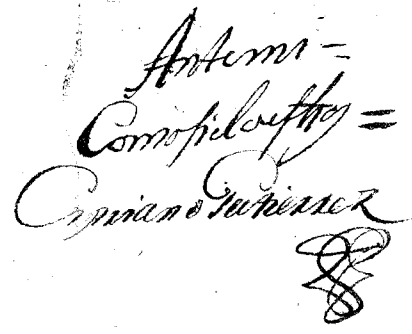 Antemi =
Comofiel desthos =
Cipriano Gutierrez